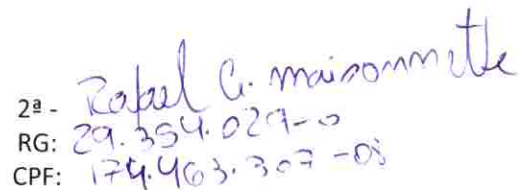 2ª - Rafael G. maisonnette
RG: 29.354.029-0
CPF: 174.463.307-08